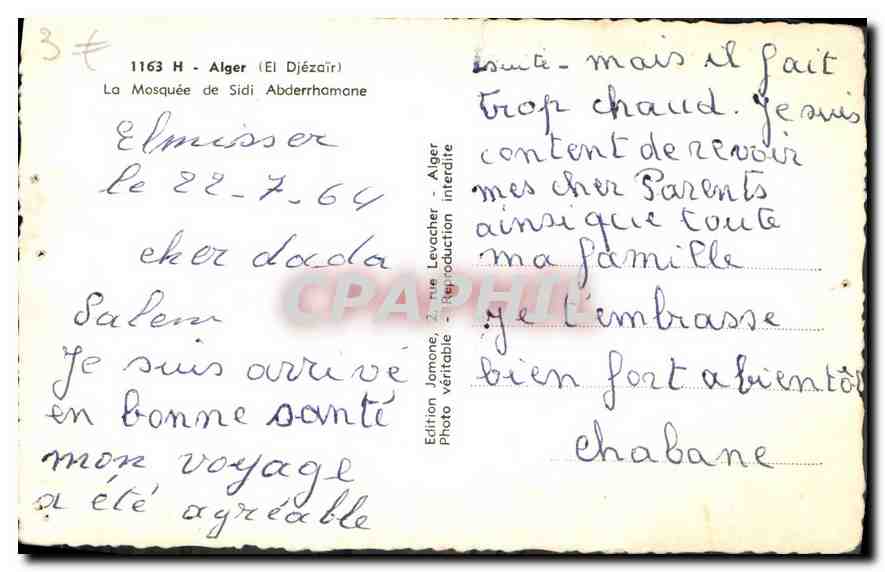 3 €
1163 H - Alger (El Djézaïr)
La Mosquée de Sidi Abderrhamane
Elmisser
le 22-7-64
cher dada
Salem
Je suis arrivé
en bonne santé
mon voyage
a été agréable
Edition Jomone, 2, rue Levacher - Alger
Photo véritable - Reproduction interdite
suite - mais il fait
trop chaud. Je suis
content de revoir
mes cher Parents
ainsi que toute
ma famille
Je t'embrasse
bien fort a bientôt
chabane
CPAPHIL